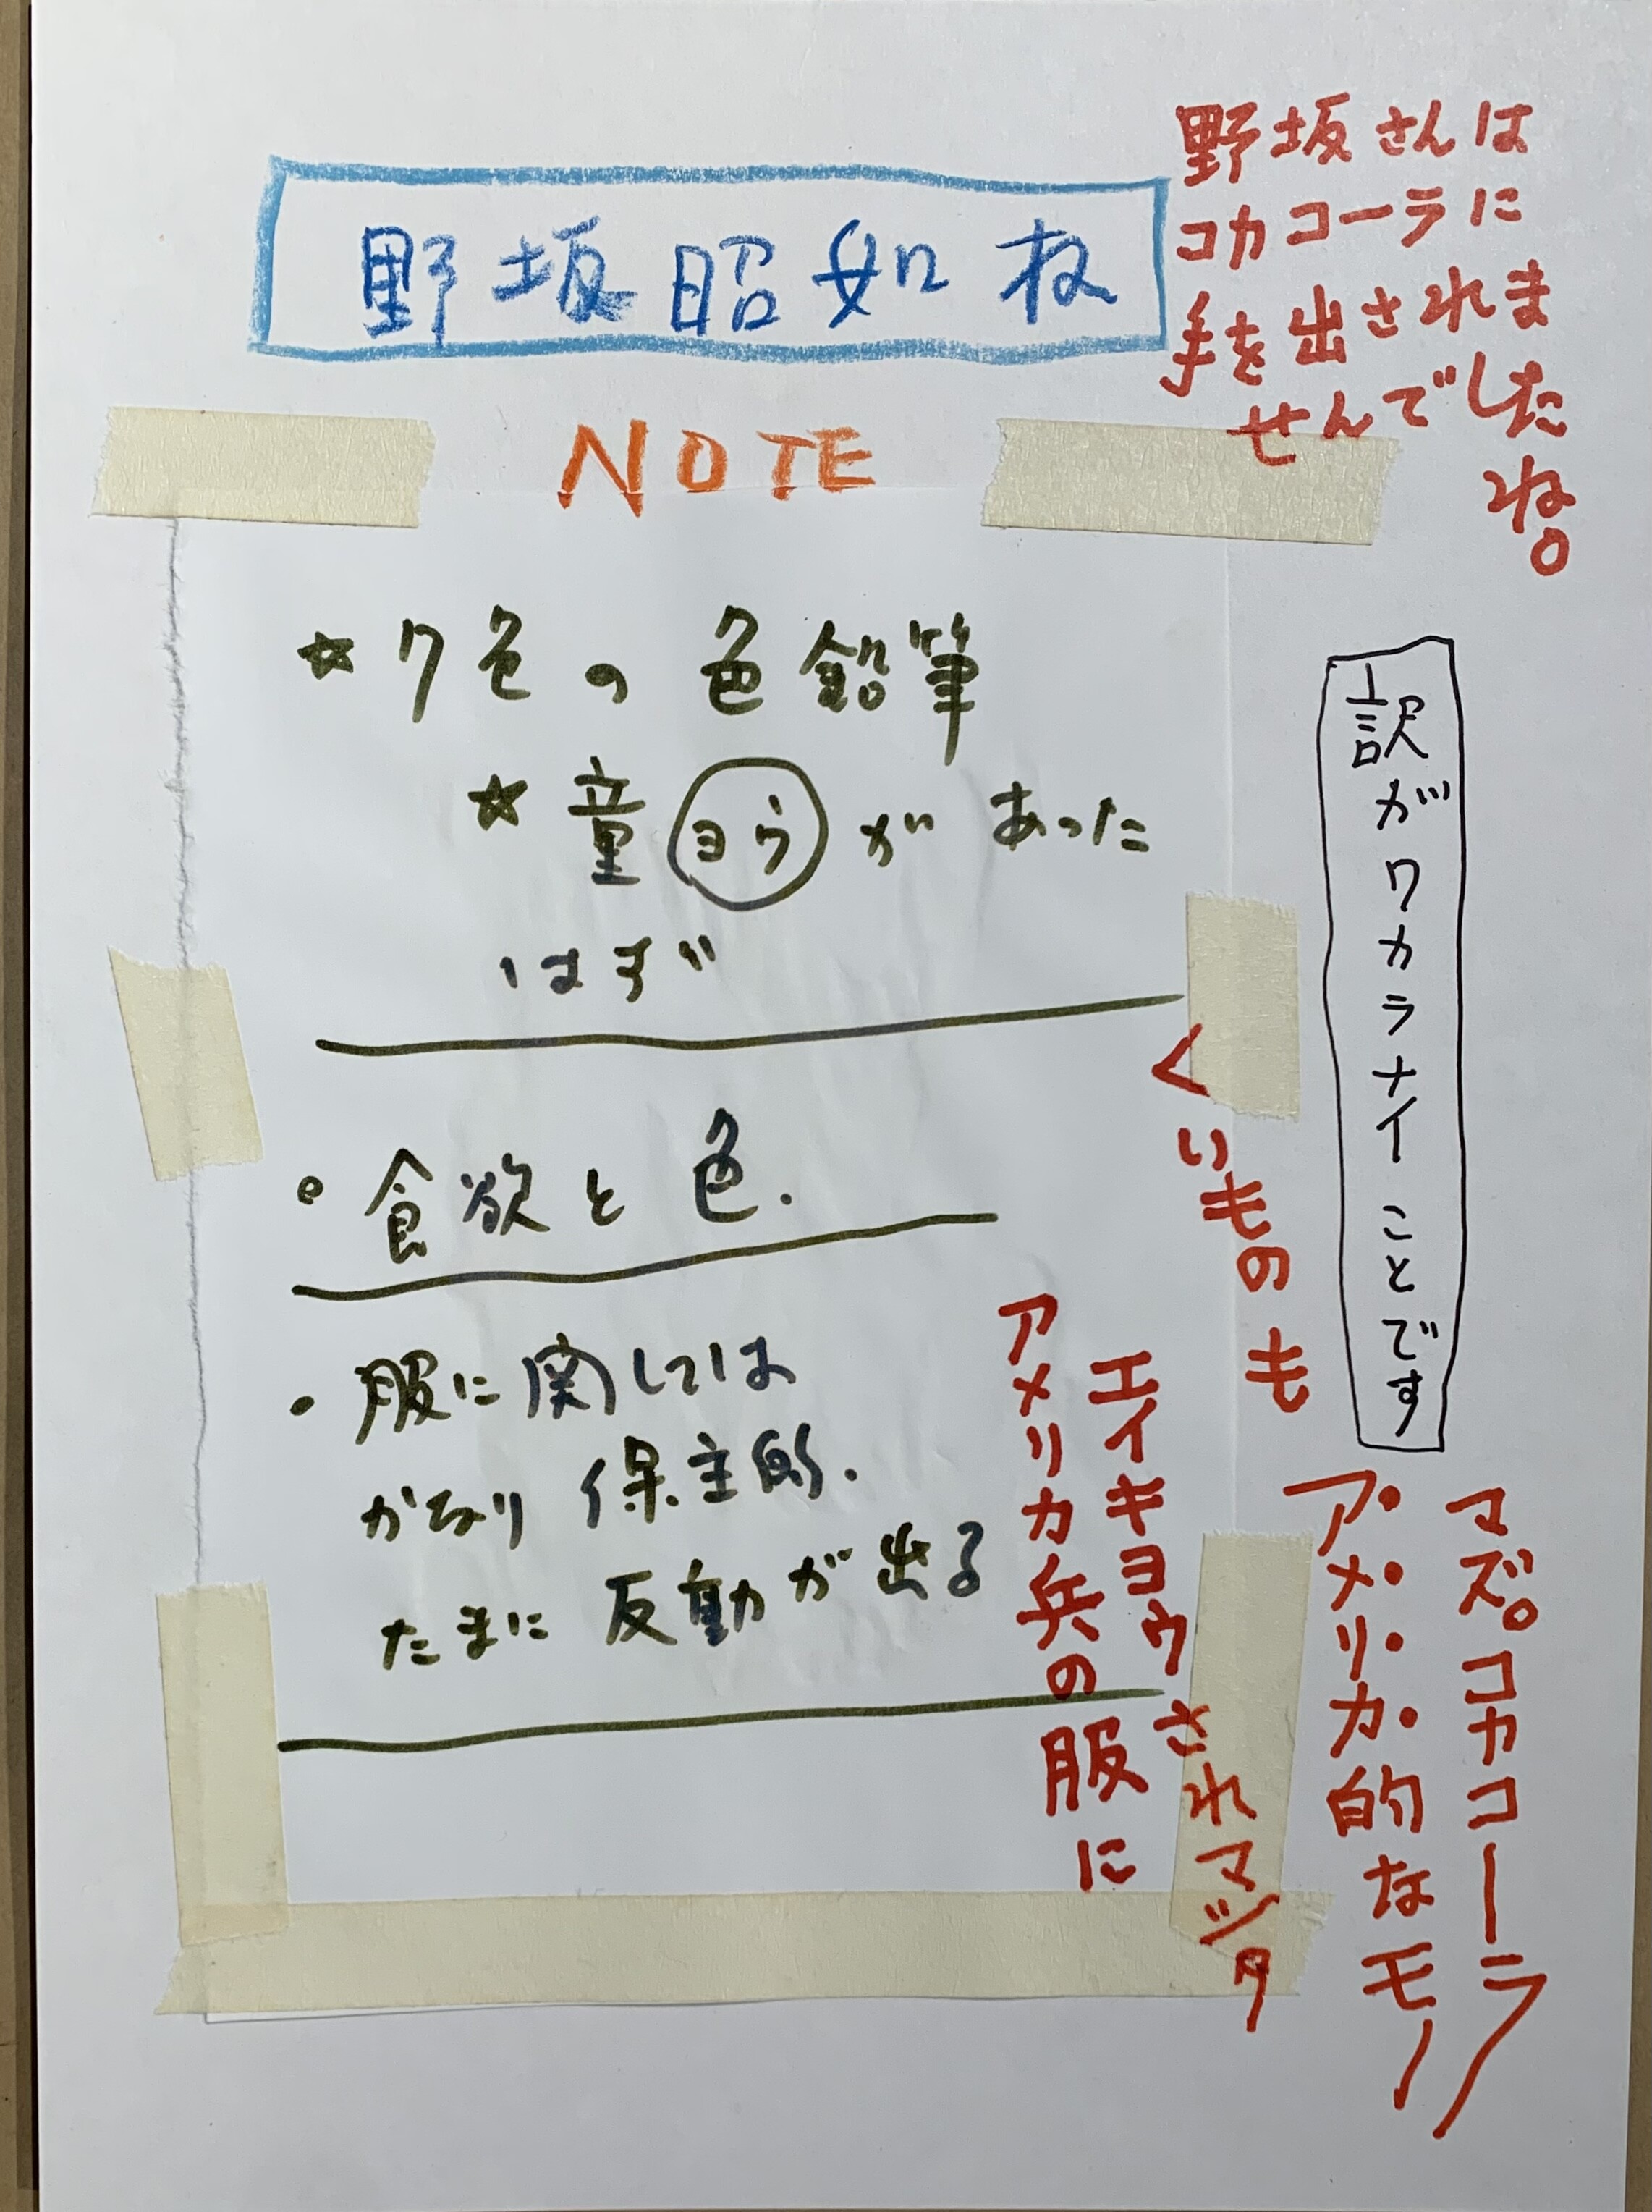 野坂昭如
野坂さんは
コカコーラに
手を出されま
せんでしたね。
NOTE
☆7色の色鉛筆
☆童ヨウがあった
はず
・食欲と色.
・服に関しては
かなり保主的.
たまに反動が出る
訳がワカラナイことです
アメリカ兵の服に
エイキヨウされマシタ
くいものも
アメリカ的なモノ
マズ。コカコーラ